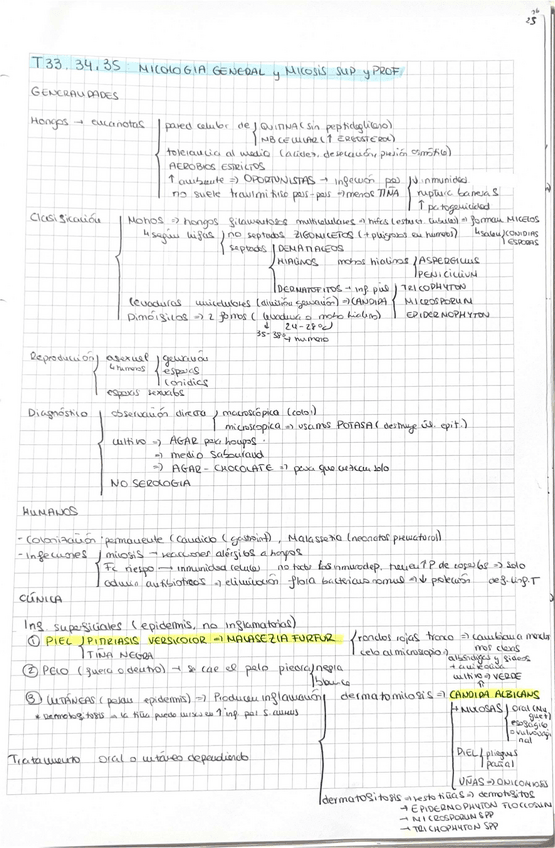 26
25
T33.34.35 MICOLOGIA GENERAL y MICOSIS SUP y PROF
GENERALIDADES
Hongos → eucariotas
pared celular de QUITINA (sin peptidoglicano)
MB CELULAR (↑ ERGOSTEROL)
tolerancia al medio (acidez, desecación, presión osmótica)
AEROBIOS ESTRICTOS
↑ ambiente => OPORTUNISTAS → infección por ↓ inmunidad
no suele transmitirse pers-pers → menos TIÑA ruptura barreras
↑ patogenicidad
Clasificación
Mohos => hongos filamentosos multicelulares → hifas => forman MICELIOS
↳ según hifas no septados ZIGOMICETOS ↳ salen CONIDIAS
ESPORAS
septados DEMATIACEOS
HIALINOS mohos hialinos ASPERGILLUS
PENICILIUM
DERMATOFITOS → inf. piel TRICOPHYTON
MICROSPORUM
EPIDERMOPHYTON
Levaduras unicelulares (división gemación) => CANDIDA
Dimórficos => 2 formas (levadura o moho hialino)
24-28°C
35-38°C → humano
Reproducción
asexual gemación
↳ humanos esporas
conidias
esporas sexuales
Diagnóstico
observación directa macroscópica (color)
microscopica => usamos POTASA (destruye cél. epit.)
cultivo => AGAR para hongos
=> medio Sabouraud
=> AGAR-CHOCOLATE => para que crezcan solo
NO SEROLOGIA
HUMANOS
- Colonización: permanente (Candida (gastroint), Malassezia (neonatos prematuros)
- Infecciones
micosis → reacciones alérgicas a hongos
Fc riesgo → inmunidad celular => solo
def. linf. T
aducim antibioticos => eliminación flora bacteriana normal => ↓ protección
CLÍNICA
Inf. superficiales (epidermis, no inflamatorias)
① PIEL PITIRIASIS VERSICOLOR => MALASEZIA FURFUR
TIÑA NEGRA
rondas rojas tronco →
celo al microscopio →
cultivo → VERDE
② PELO (fuera o dentro) → se cae el pelo piedra negra
blanca
③ CUTÁNEAS (pasan epidermis) => Producen inflamación
* Dermatofitosis → la tiña puede ↑ inf. por S. aureus
dermatomicosis => CANDIDA ALBICANS
→ MUCOSAS oral (Muguet)
esofágico
o vulvovaginal
PIEL pliegues
pañal
UÑAS => ONICOMICOSIS
Tratamiento oral o cutáneo dependiendo
dermatofitosis → resto tiñas => dermatofitos
→ EPIDERMOPHYTON FLOCLOSUM
→ MICROSPORUM SPP
→ TRICHOPHYTON SPP